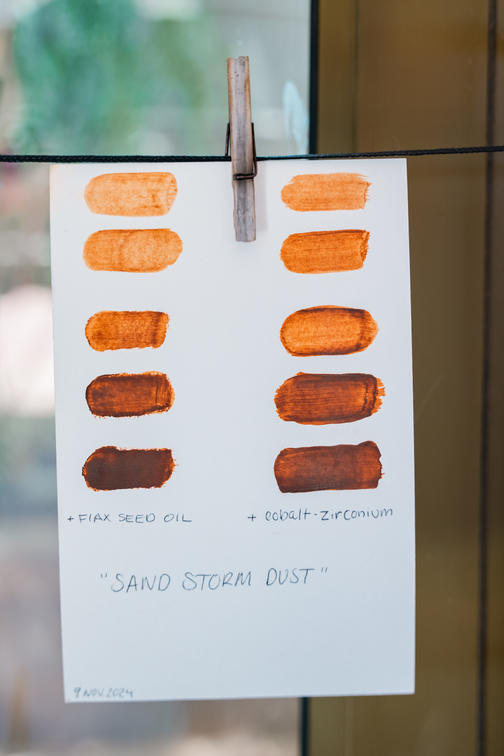 + FLAX SEED OIL
+ cobalt-zirconium
"SAND STORM DUST"
9 NOV. 2024